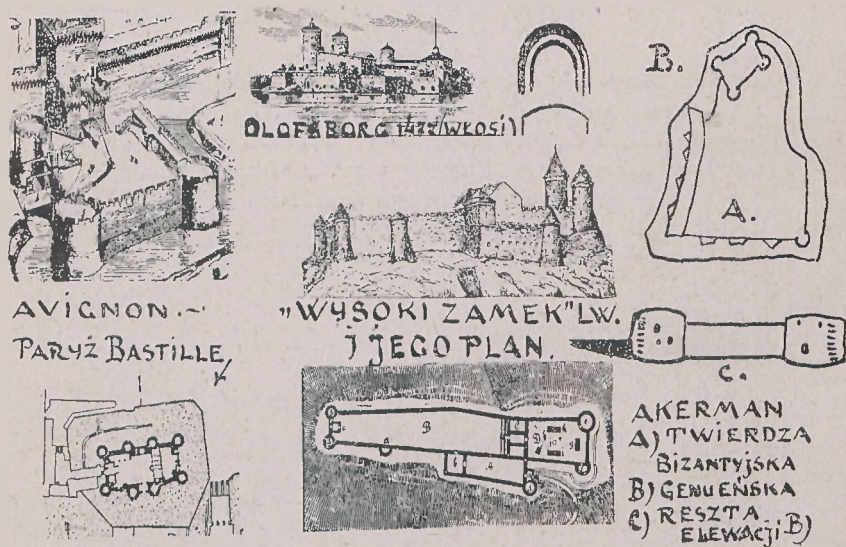 OLOFSBORG 1477(WŁOSI)
B.
A.
AVIGNON.~
PARYŻ BASTILLE
"WYSOKI ZAMEK" LW.
I JEGO PLAN.
C.
B
A
D
AKERMAN
A) TWIERDZA
BIZANTYJSKA
B) GENUEŃSKA
C) RESZTA
ELEWACJI B)